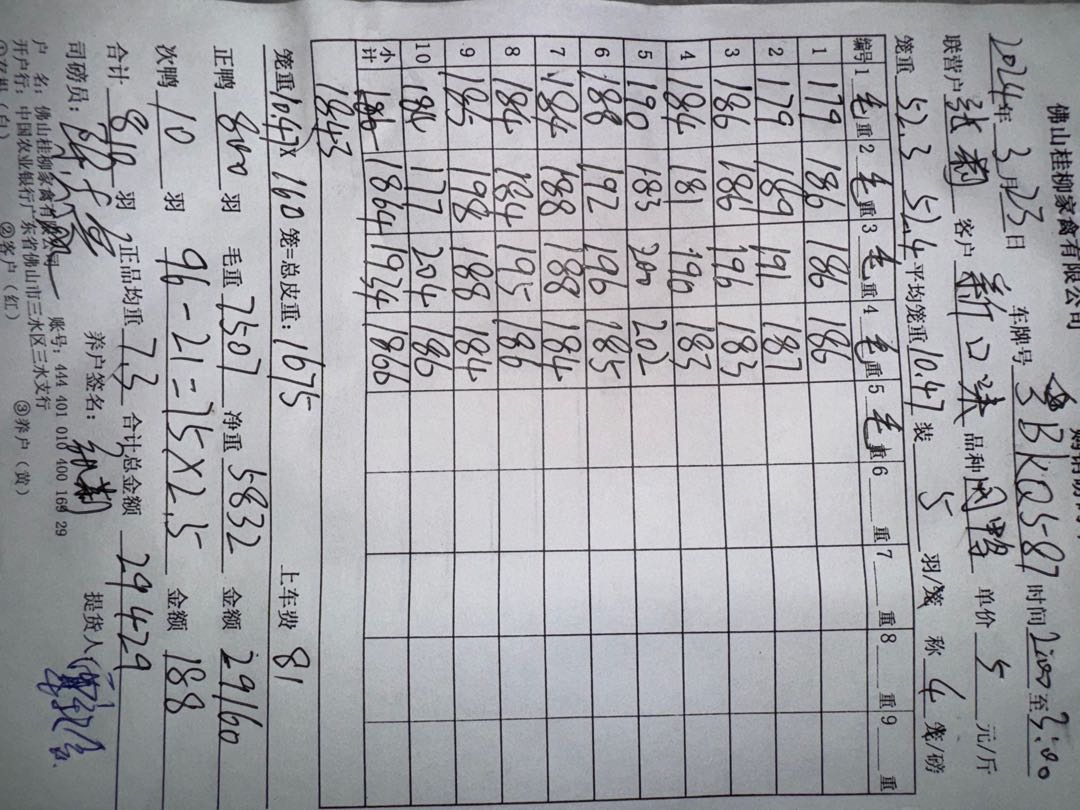 佛山桂柳家禽有限公司
2024年3月23日 车牌号 粤BK0S-87 时间 2:00至3:00
联营户 张菊 客户 新口味 品种 单价 5 元/斤
笼重 52.3 52.4 平均笼重 10.47 装 5 羽/笼 称 4 笼/磅
编号 1 毛重 2 毛重 3 毛重 4 毛重 5 毛重 6 重 7 重 8 重 9 重
1 179 186 186 186
2 179 169 191 187
3 186 186 196 183
4 184 181 190 183
5 190 183 200 202
6 188 192 196 185
7 184 188 188 184
8 184 184 195 186
9 185 198 188 184
10 184 177 204 186
小计 1864 1934 1866
1843
笼重 10.47 X 160 笼=总皮重: 1675 上车费 81
正鸭 800 羽 毛重 7507 净重 5832 金额 29160
次鸭 10 羽 96-21=75×2.5 金额 188
合计 810 羽 正品均重 7.3 合计总金额 29429
司磅员: 养户签名: 张菊 提货人
户 名: 佛山桂柳家禽有限公司 账号: 444 401 010 400 169 29
开户行: 中国农业银行广东省佛山市三水区三水支行
(白) ②客户(红) ③养户(黄)